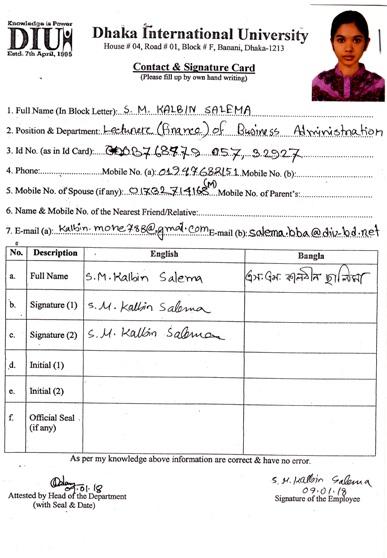 Knowledge is Power
DIU
Estd. 7th April, 1995
Dhaka International University
House # 04, Road # 01, Block # F, Banani, Dhaka-1213
Contact & Signature Card
(Please fill up by own hand writing)
1. Full Name (In Block Letter): S. M. KALBIN SALEMA
2. Position & Department: Lecturer (Finance) of Business Administration
3. Id No. (as in Id Card): 057, 32927
4. Phone: Mobile No. (a): 01947682151 Mobile No. (b):
5. Mobile No. of Spouse (if any): 01732714168 (M) Mobile No. of Parent's:
6. Name & Mobile No. of the Nearest Friend/Relative:
7. E-mail (a): kalbin.mone788@gmail.com E-mail (b): salema.bba@diu-bd.net
No. Description English Bangla
a. Full Name S.M. Kalbin Salema এস.এম.
b. Signature (1) S. M. Kalbin Salema
c. Signature (2) S. M. Kalbin Salema
d. Initial (1)
e. Initial (2)
f. Official Seal (if any)
As per my knowledge above information are correct & have no error.
09.01.18
Attested by Head of the Department
(with Seal & Date)
S. M. Kalbin Salema
09.01.18
Signature of the Employee